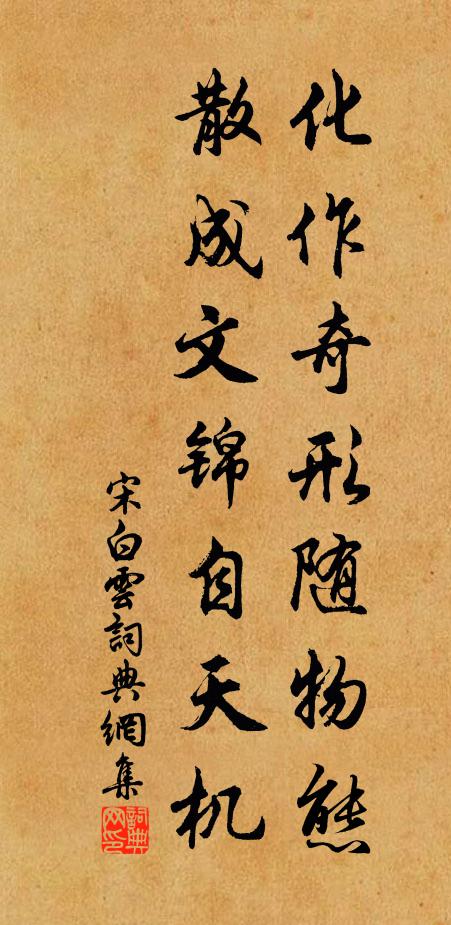 化作奇形随物態
散成文锦自天机
宋白雲詞典網集
詞典網印